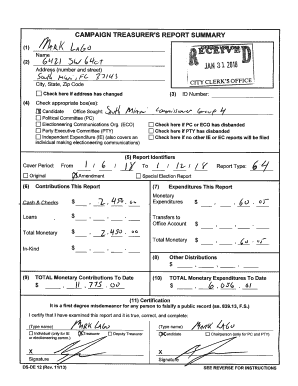 CAMPAIGN TREASURER'S REPORT SUMMARY
(1) MARK LAGO
Name
(2) 6421 SW 64CT
Address (number and street)
South Miami, FL 33143
City, State, Zip Code
Check here if address has changed
RECEIVED
JAN 31 2018
CITY CLERK'S OFFICE
(3) ID Number:
(4) Check appropriate box(es):
Candidate Office Sought: South Miami Commissioner Group 4
Political Committee (PC)
Electioneering Communications Org. (ECO) Check here if PC or ECO has disbanded
Party Executive Committee (PTY) Check here if PTY has disbanded
Independent Expenditure (IE) (also covers an individual making electioneering communications) Check here if no other IE or EC reports will be filed
(5) Report Identifiers
Cover Period: From 1 / 6 / 18 To 1 / 12 / 18 Report Type: G4
Original X Amendment Special Election Report
(6) Contributions This Report
Cash & Checks $ 2,450.00
Loans $
Total Monetary $ 2,450.00
In-Kind $
(7) Expenditures This Report
Monetary Expenditures $ 60.05
Transfers to Office Account $
Total Monetary $ 60.05
(8) Other Distributions
$
(9) TOTAL Monetary Contributions To Date
$ 11,775.00
(10) TOTAL Monetary Expenditures To Date
$ 6,036.01
(11) Certification
It is a first degree misdemeanor for any person to falsify a public record (ss. 839.13, F.S.)
I certify that I have examined this report and it is true, correct, and complete:
(Type name) MARK LAGO
Individual (only for IE or electioneering comm.) Treasurer Deputy Treasurer
X
Signature
(Type name) MARK LAGO
Candidate Chairperson (only for PC and PTY)
X
Signature
DS-DE 12 (Rev. 11/13) SEE REVERSE FOR INSTRUCTIONS